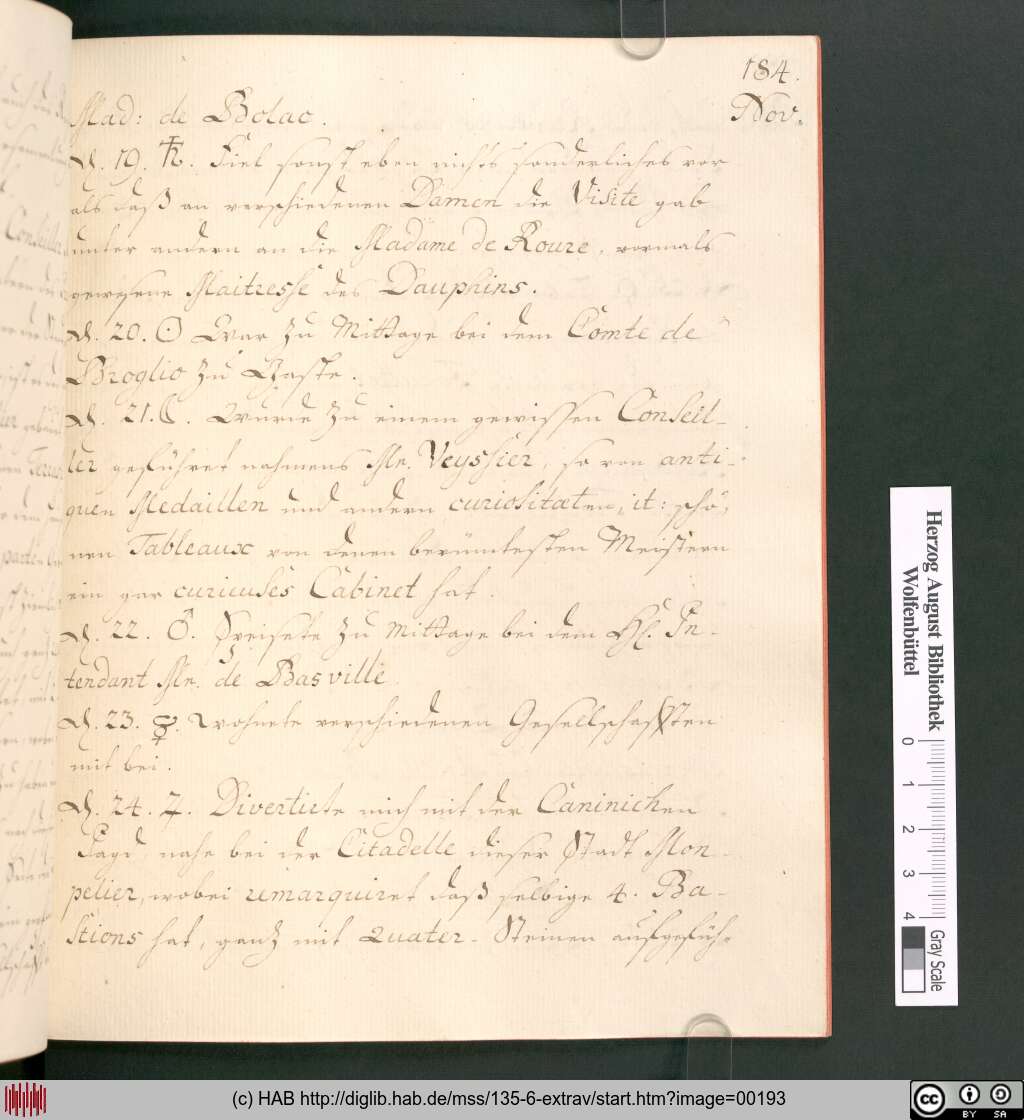 184.
Nov.
Mad: de Bolac.
D. 19. ♄. Fiel sonst eben nichts sonderliches vor
als daß an verschiedenen Damen die Visite gab
unter andern an die Madame de Roure, vormals
gewesene Maitresse des Dauphins.
D. 20. ☉ War zu Mittage bei dem Comte de
Broglio zu Gaste.
D. 21. ☾. Wurde zu einem gewissen Conseil-
ler geführet nahmens Mr. Veyssier, so von anti-
quen Medaillen und andern curiositæten, it: schö-
nen Tableaux von denen berümtesten Meistern
ein gar curieuses Cabinet hat.
D. 22. ♂. Speisete zu Mittage bei dem H. In-
tendant Mr. de Basville
D. 23. ☿. wohnete verschiedenen Gesellschafften
mit bei.
D. 24. ♃. Divertirte mich mit der Caninichen
Jagd, nahe bei der Citadelle dieser Stadt Mon-
pelier, wobei remarquiret daß selbige 4. Ba-
stions hat, gantz mit Quater-Steinen aufgefüh-
Herzog August Bibliothek
Wolfenbüttel
0 1 2 3 4
Gray Scale
(c) HAB http://diglib.hab.de/mss/135-6-extrav/start.htm?image=00193
cc BY SA